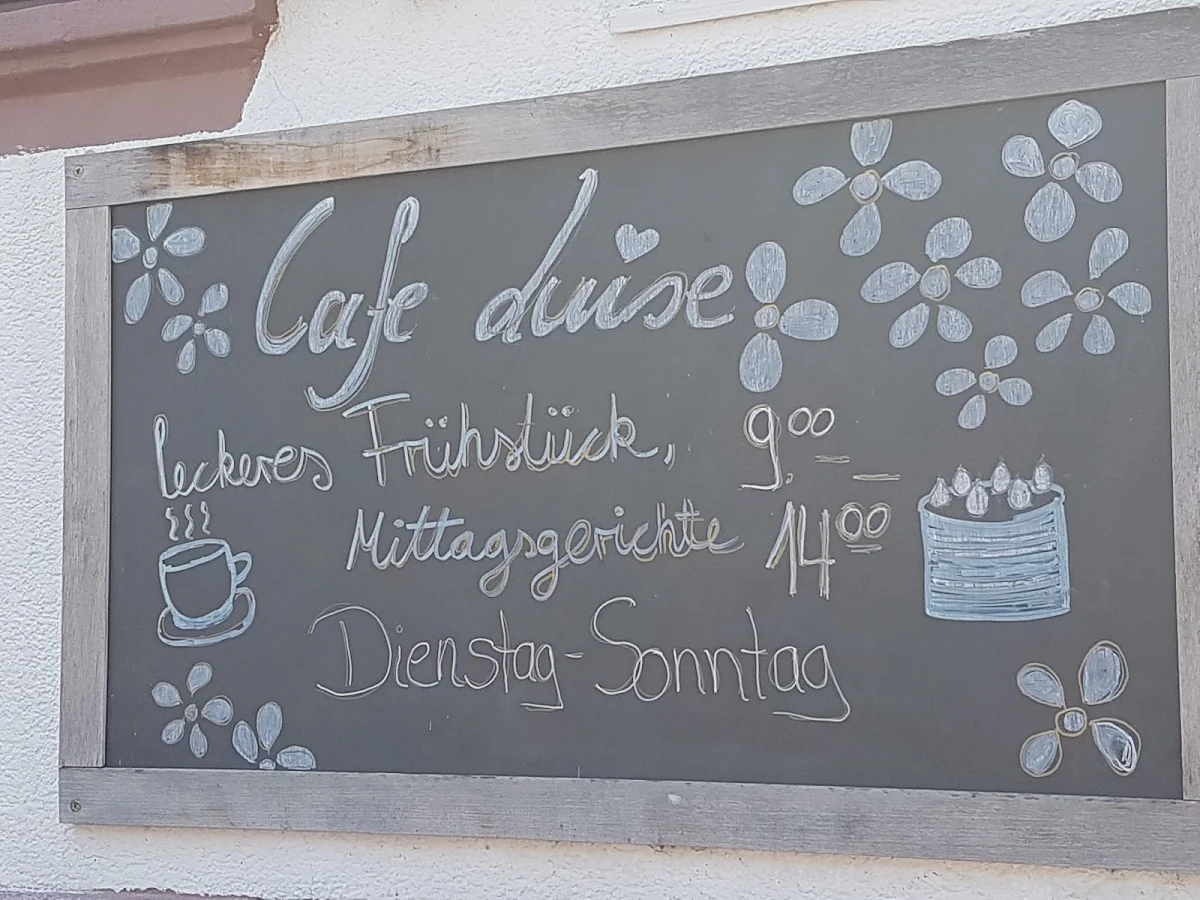 Cafe Luise
leckeres Frühstück, 9.00 –
Mittagsgerichte 14 00
Dienstag-Sonntag